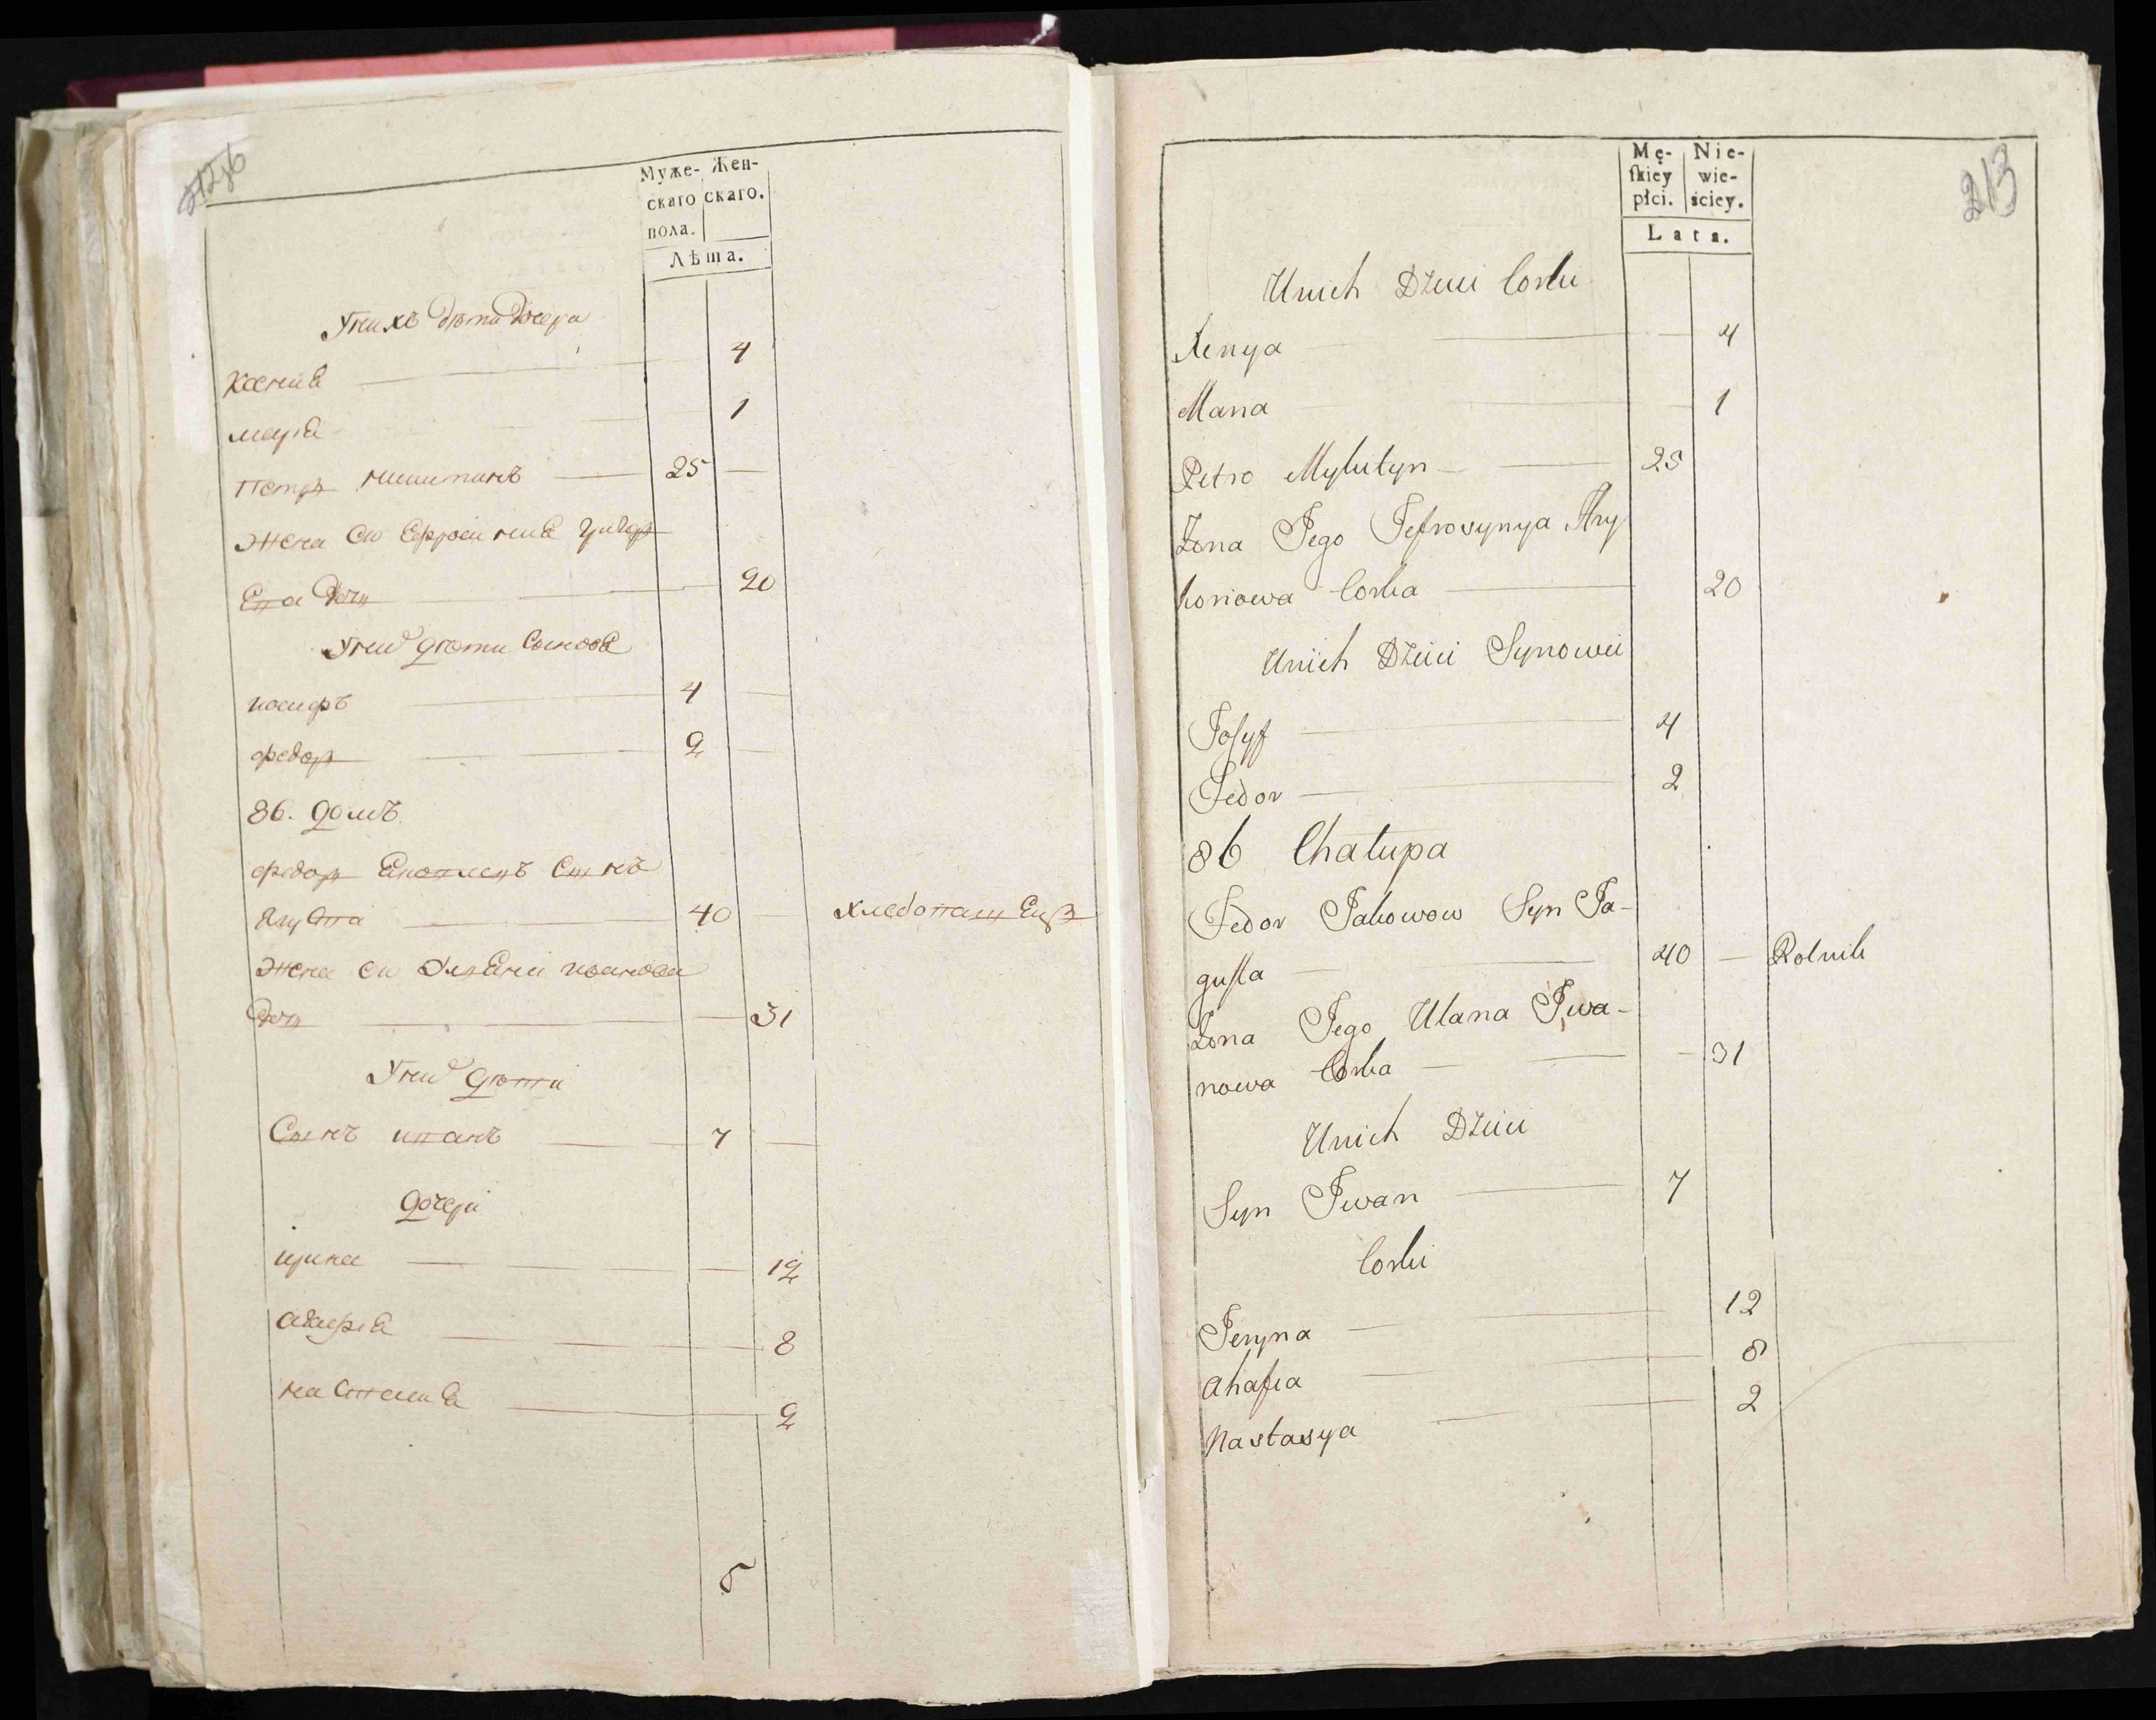 Муже-
скаго
пола.
Жен-
скаго.
Лѣта.
Унихъ дѣти дочери
Ксения 4
мария 1
Петръ 25
Жена его Ефросиния Григор
Ева дочь 20
Уних дѣти Сыновя
иосифъ 4
федоръ 2
86. домъ
федоръ Яковлевъ Сынъ
Ягуста 40 хлебопашецъ
Жена его Улияна иванова
дочь 31
Уних дѣти
Сынъ иванъ 7
дочери
ирина 12
агафия 8
настасия 2
213
Mę-
skiey
płci.
Nie-
wie-
ściey.
Lata.
Unich Dzieci Corki
Xenya 4
Maria 1
Petro Mykityn 25
Żona Jego Jefrosynya Hry
horiowa Corka 20
Unich Dzieci Synowei
Josyf 4
Fedor 2
86 Chałupa
Fedor Jakowow Syn Ja-
gusta 40 Rolnik
Żona Jego Ulana Iwa-
nowa Corka 31
Unich Dzieci
Syn Iwan 7
Corki
Jeryna 12
Ahafia 8
Nastasya 2